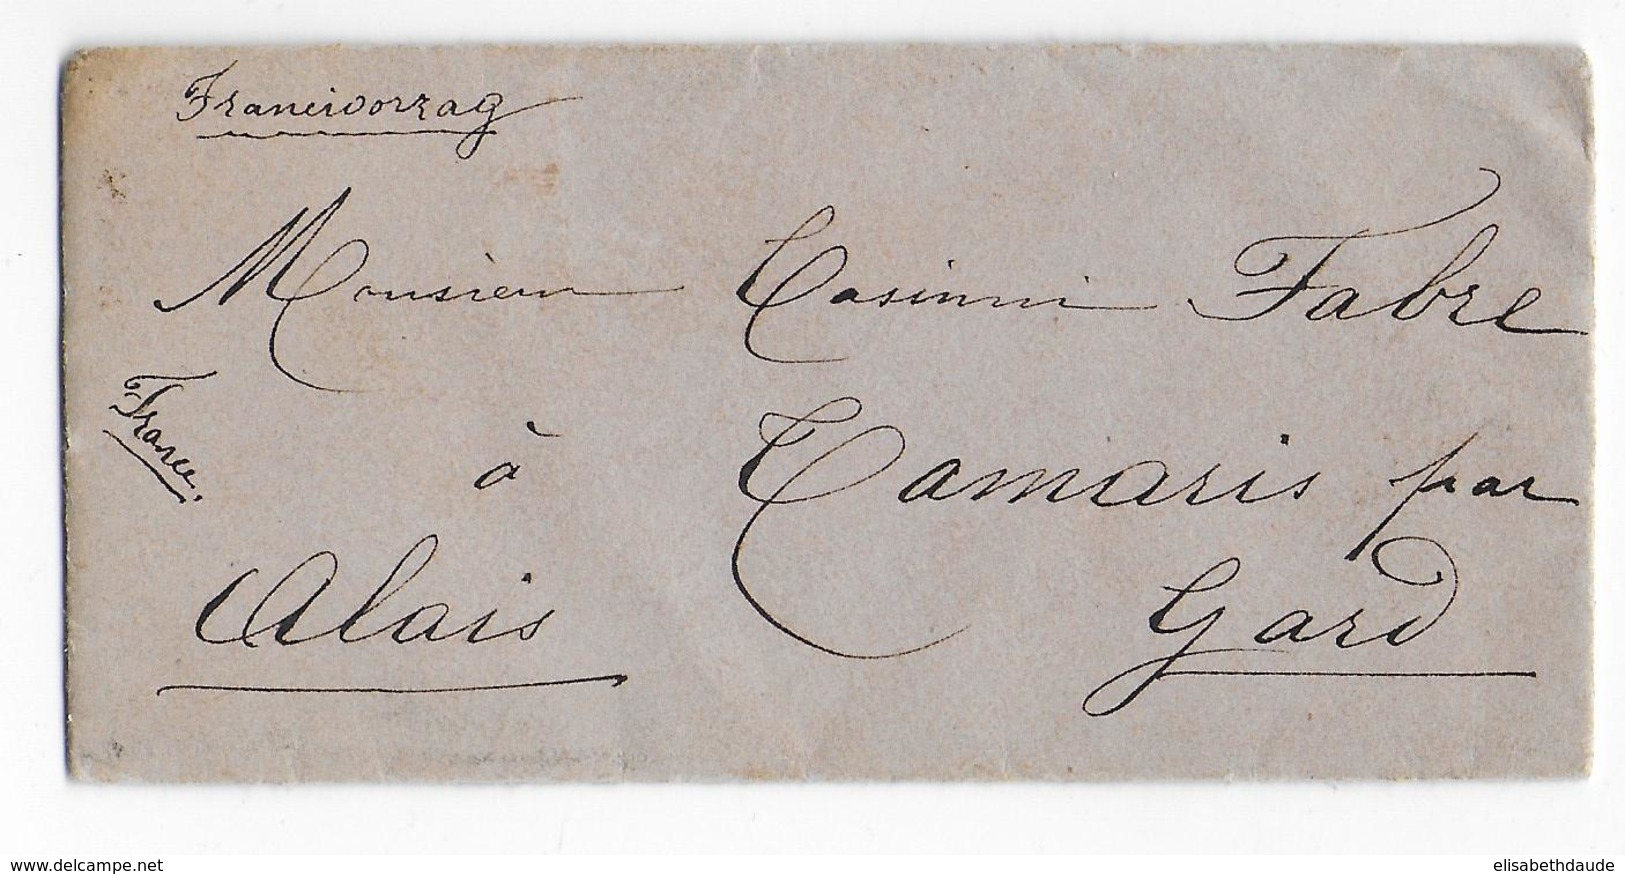 Franciaország
Monsieur Casimir Fabre
France.
à Tamaris par
Alais Gard
www.delcampe.net
elisabethdaude